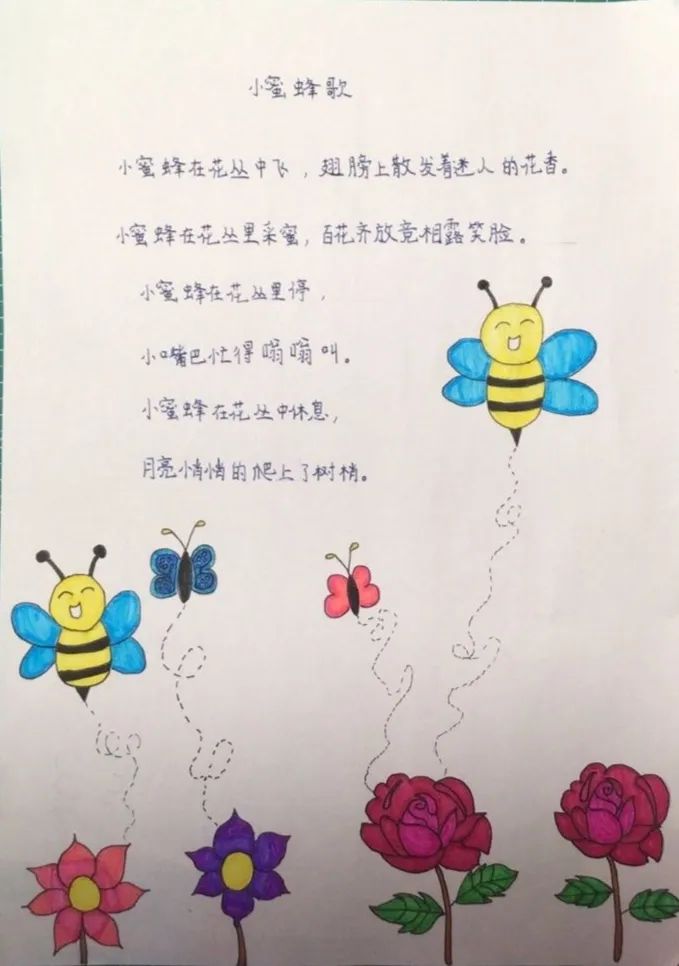 小蜜蜂歌
小蜜蜂在花丛中飞，翅膀上散发着迷人的花香。
小蜜蜂在花丛里采蜜，百花齐放竞相露笑脸。
小蜜蜂在花丛里停，
小嘴巴忙得嗡嗡叫。
小蜜蜂在花丛中休息，
月亮悄悄的爬上了树梢。